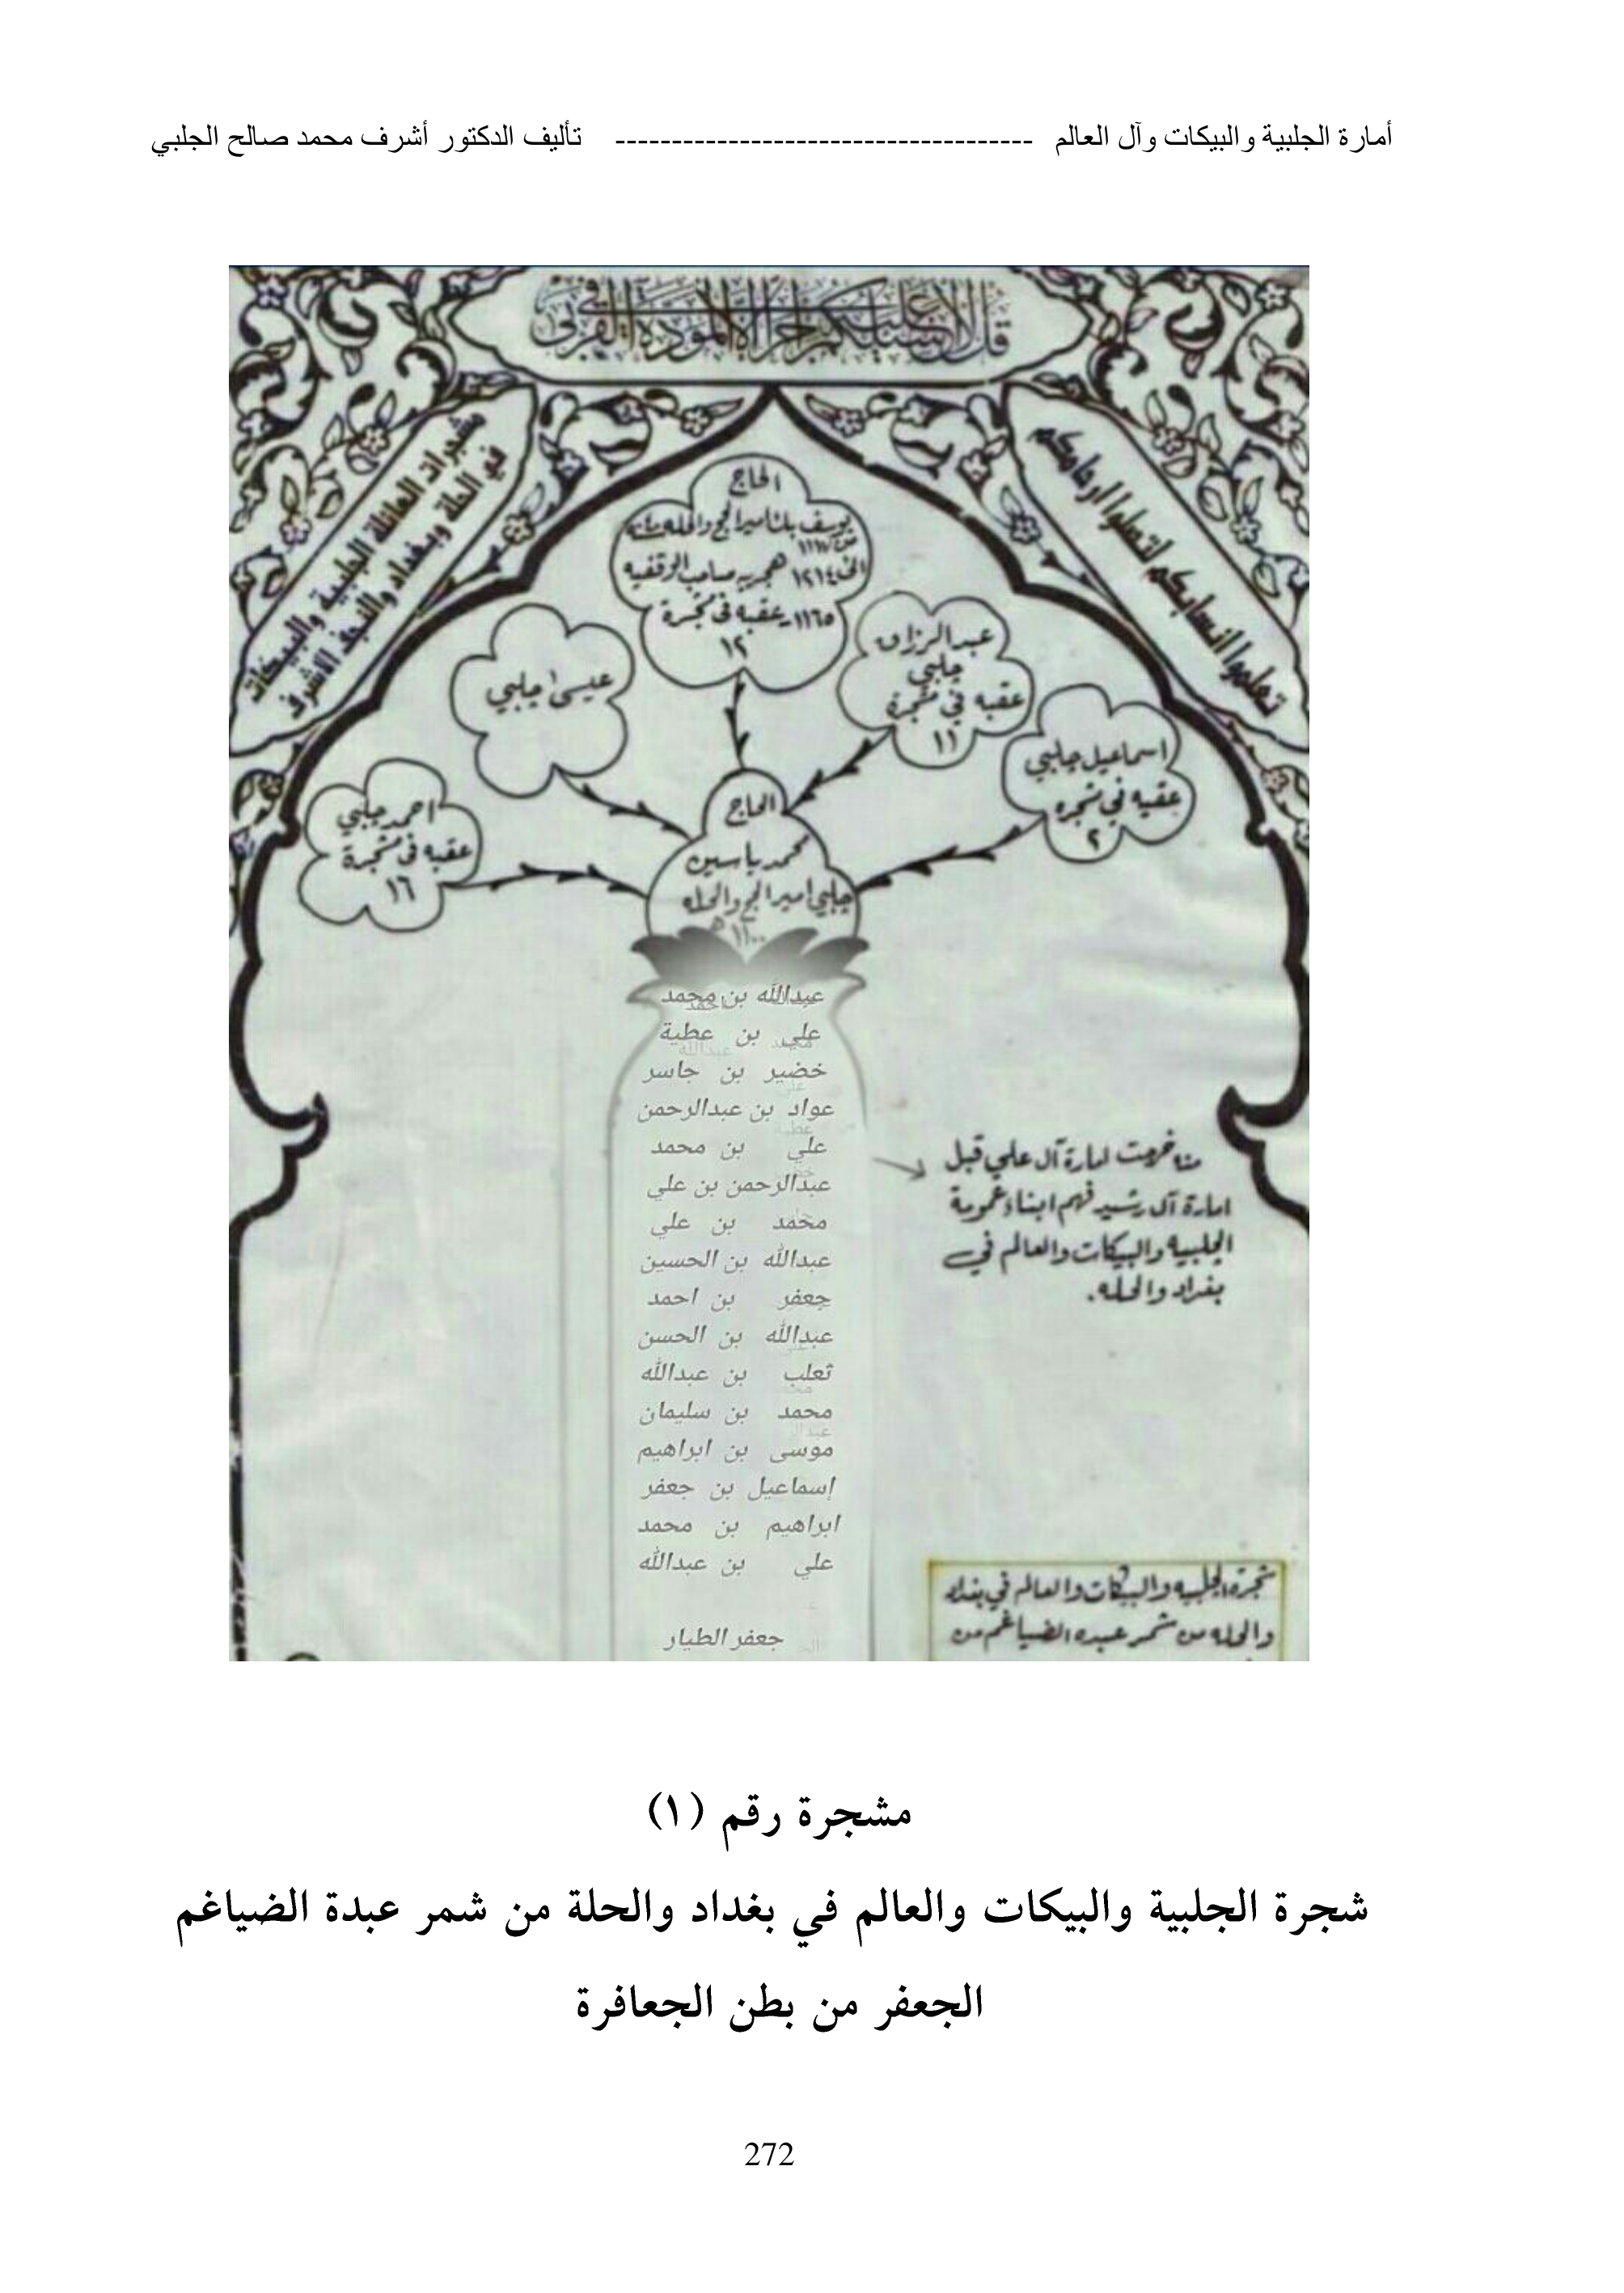 أمارة الجلبية والبيكات وآل العالم ------------------------------------- تأليف الدكتور أشرف محمد صالح الجلبي
قل لا أسئلكم عليه أجرا إلا المودة في القربى
مشجرات العائلة الجلبية والبيكات
في الحلة وبغداد والنجف الاشرف
تعلموا انسابكم لتصلوا ارحامكم
الحاج
يوسف بك امير الحج والحله
١٢١٤ هجريه صاحب الوقفيه
١١٦٥ - عقبه في مشجرة
١٢
عبدالرزاق
جلبي
عقبه في مشجرة
١١
عيسى جلبي
اسماعيل جلبي
عقبه في مشجره
٢
احمد جلبي
عقبه في مشجرة
١٦
الحاج
محمد ياسين
جلبي امير الحج والحله
١١٠٠ هـ
عبدالله بن محمد
علي بن عطية
خضير بن جاسر
عواد بن عبدالرحمن
علي بن محمد
عبدالرحمن بن علي
محمد بن علي
عبدالله بن الحسين
جعفر بن احمد
عبدالله بن الحسن
ثعلب بن عبدالله
محمد بن سليمان
موسى بن ابراهيم
إسماعيل بن جعفر
ابراهيم بن محمد
علي بن عبدالله
جعفر الطيار
منه خرجت امارة آل علي قبل
امارة آل رشيد فهم ابناء عمومة
الجلبيه والبيكات والعالم في
بغداد والحله.
شجرة الجلبيه والبيكات والعالم في بغداد
والحله من شمر عبده الضياغم من
مشجرة رقم (١)
شجرة الجلبية والبيكات والعالم في بغداد والحلة من شمر عبدة الضياغم
الجعفر من بطن الجعافرة
272